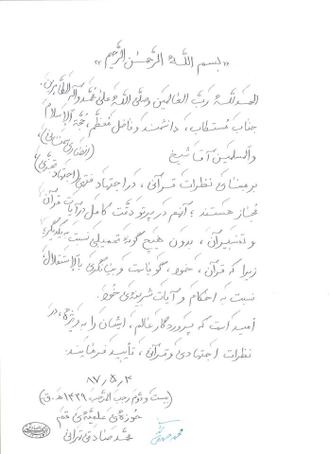 «بسم اللّه الرّحمن الرّحیم»
الحمدللّه ربّ العالمین و صلّی اللّه علی محمّد و آله الطّاهرین.
جناب مستطاب، دانشمند و فاضل معظّم، حجّة الإسلام
والمسلمین آقا شیخ
بر مبنای نظرات قرآنی، در اجتهاد فقهی (اجتهاد متجزّی)
مُجاز هستند؛ آنهم در پرتو دقّت کامل در آیات قرآن
و تفسیر آن، بدون هیچ گونه تحمیلی نسبت به یکدیگر؛
زیرا که قرآن، خود، گویاست و بیانگری با استقلال
نسبت به احکام و آیات شریفه‌ی خود.
امید است که پروردگار عالم، ایشان را به ویژه، در
نظرات اجتهادی و قرآنی، تأیید فرماید.
۸۷/۵/۴
(بیست و دوم رجب المرجّب ۱۴۲۹ ه.ق)
حوزه‌ی علمیّه‌ی قم
محمّد صادقی تهرانی